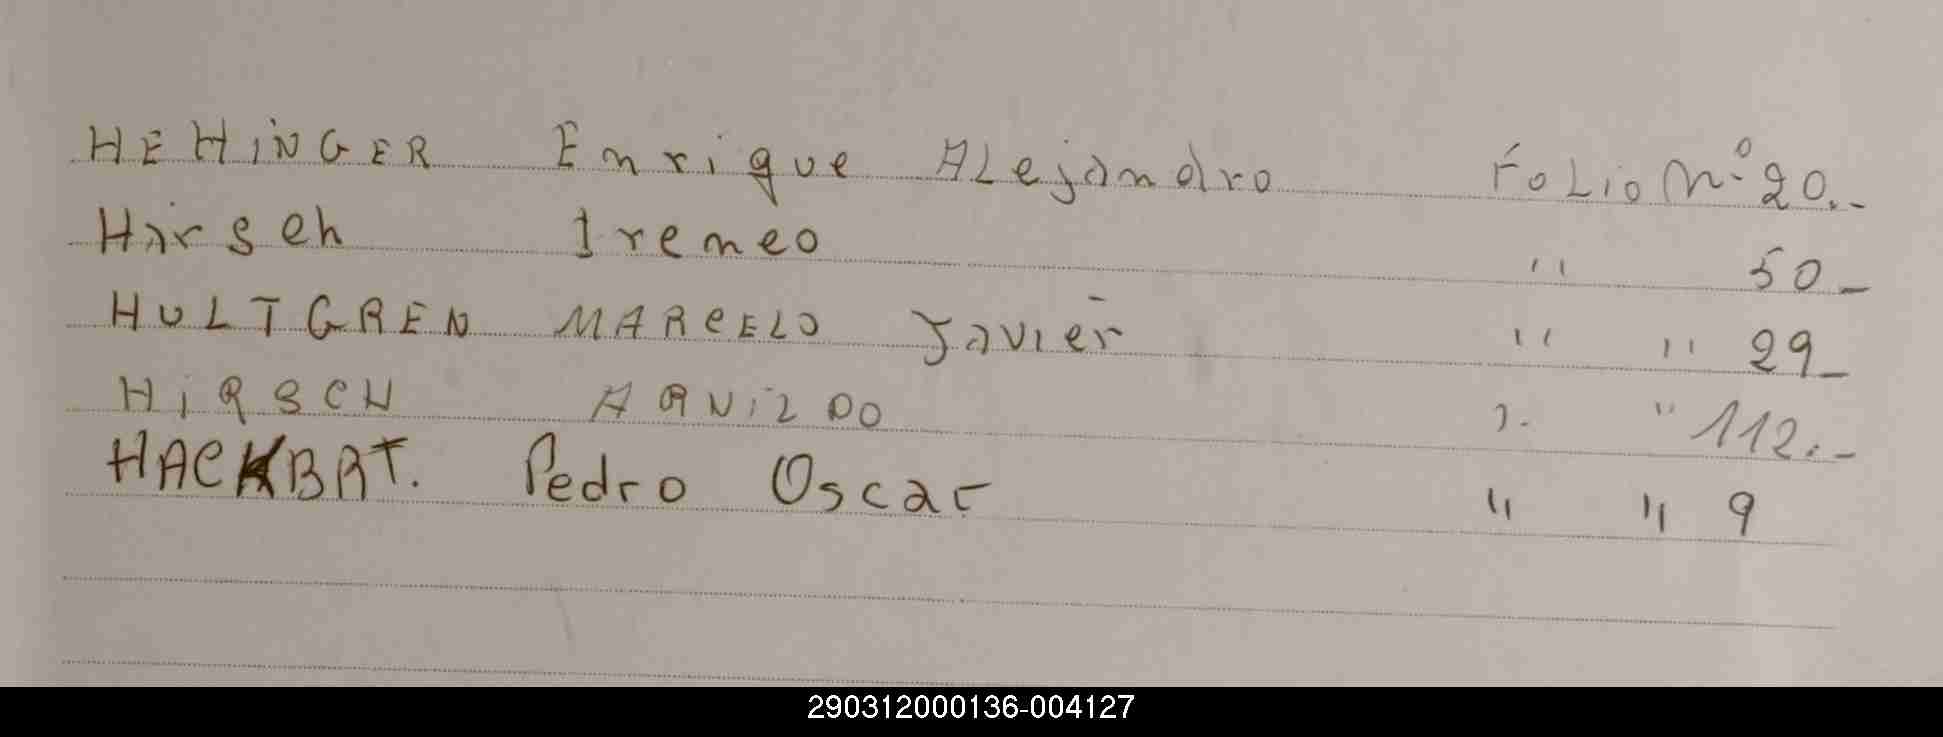 HEHINGER Enrique ALejandro FoLio Nº 20.-
Hirseh Ireneo " 50-
HULTGREN MARCELO Javier " " 29-
HiRSCH ARNiLDO " " 112.-
HACKBRT. Pedro Oscar " " 9
290312000136-004127